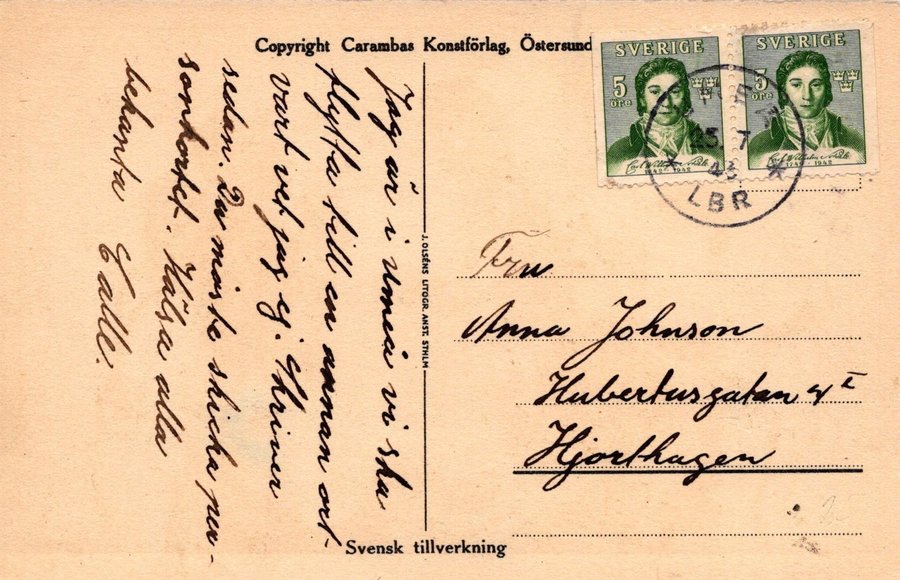 Copyright Carambas Konstförlag, Östersund
Jag är i Umeå vi ska
flytta till en annan ort
vart vet jag ej. Skriver
sedan. Du måste skicka per-
sonkortet. Hälsa alla
bekanta Calle.
J. OLSÉNS LITOGR. ANST. STHLM
Svensk tillverkning
SVERIGE
5
öre
Carl Wilhelm Scheele
1742 1942
SVERIGE
5
öre
Carl Wilhelm Scheele
1742 1942
25. 7
43
LBR
Fru
Anna Johnson
Hubertusgatan 4 I
Hjorthagen